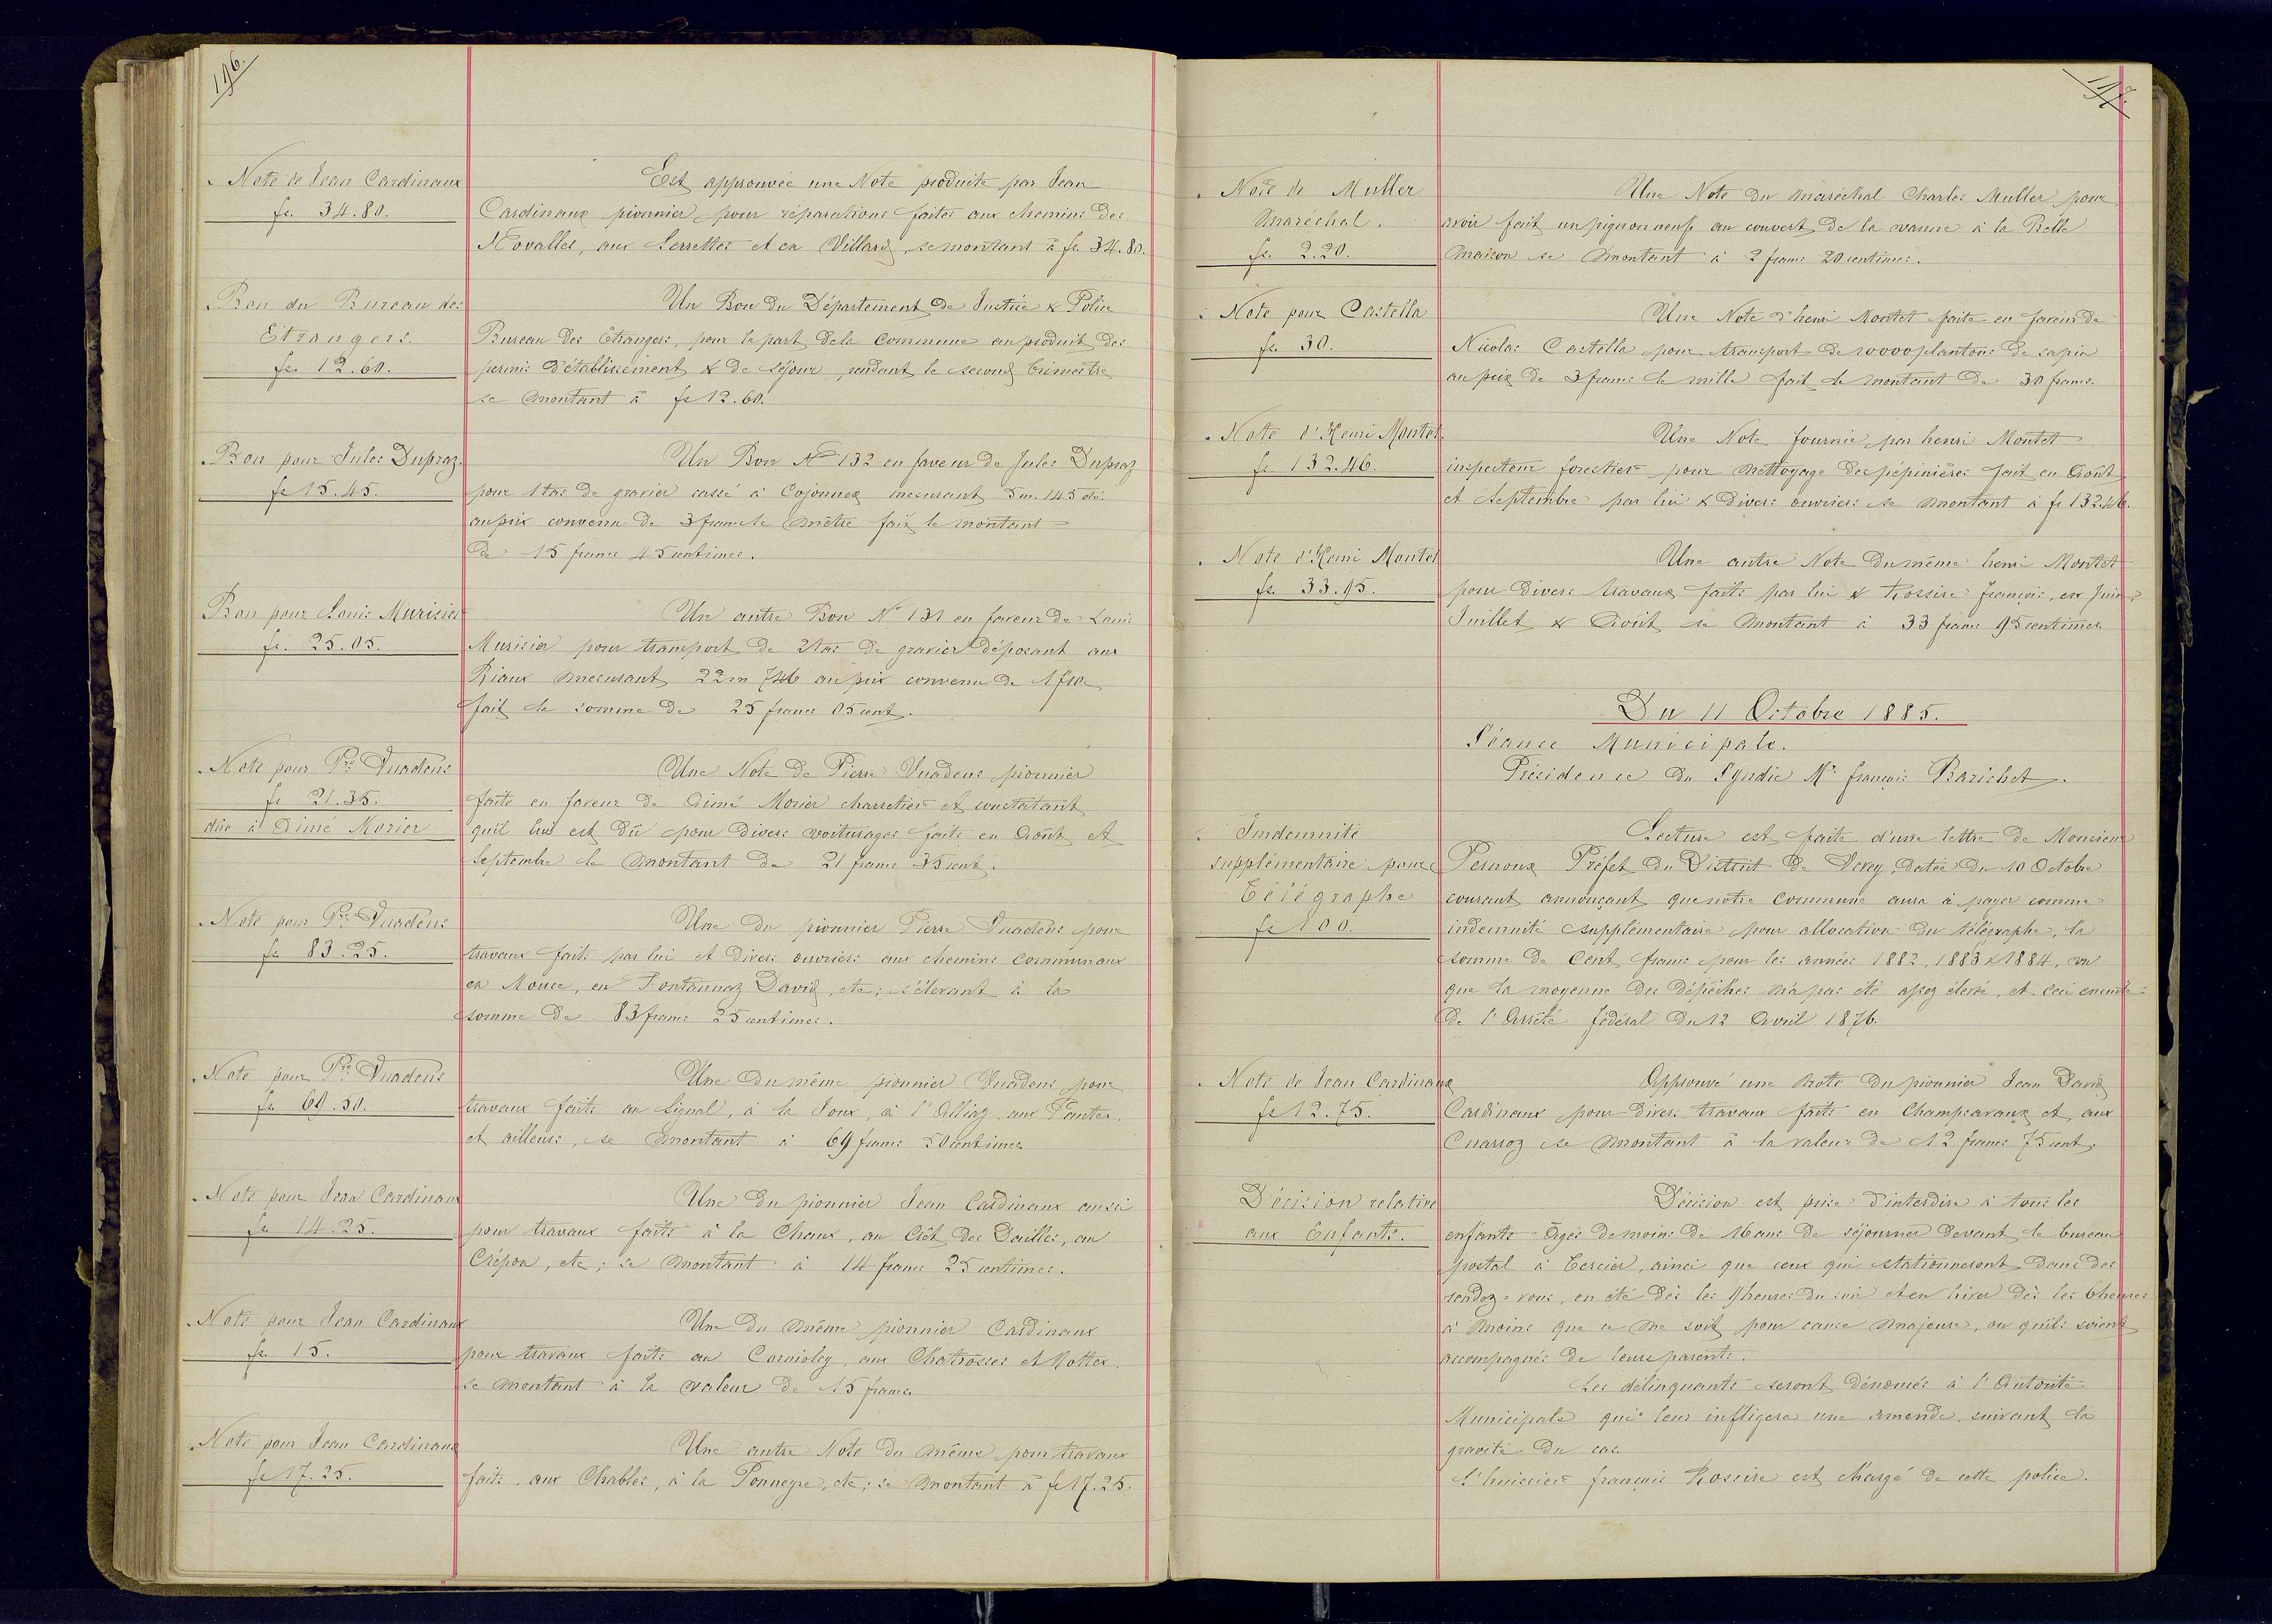 196.
Note de Jean Cardinaux
fr. 34.80.
Est approuvée une Note produite par Jean
Cardinaux pionnier pour réparations faites aux chemins des
Novalles, aux Serrettes et en Villard, se montant à fr. 34.80.
Bon du Bureau des
Etrangers.
fr. 12.60.
Un Bon du Département de Justice & Police
Bureau des Etrangers, pour la part de la Commune au produit des
permis d'établissement & de séjour pendant le second trimestre
se montant à fr 12.60.
Bon pour Jules Dupraz.
fr 15.45.
Un Bon No 132 en faveur de Jules Dupraz
pour 1 tas de gravier cassé à Cojonnex mesurant 5m.145 de.
au prix convenu de 3 francs le mètre fait le montant
de 15 francs 45 centimes.
Bon pour Louis Murisier
fr. 25.05.
Un autre Bon No 131 en faveur de Louis
Murisier pour transport de 2 tas de gravier déposant aux
Riaux mesurant 22m 746 au prix convenu de 1f10c
fait la somme de 25 francs 05 cent.
Note pour Pre Vuadens
fr 21.35.
dûe à Aimé Morier
Une Note de Pierre Vuadens pionnier
faite en faveur de Aimé Morier charretier et constatant
qu'il lui est dû pour divers voiturages faits en Août et
Septembre le montant de 21 francs 35 cent.
Note pour Pre Vuadens
fr 83.25.
Une du pionnier Pierre Vuadens pour
travaux faits par lui et divers ouvriers aux chemins communaux
en Mouce, en Fontannaz David, etc; s'élevant à la
somme de 83 francs 25 centimes.
Note pour Pre Vuadens
fr 69.50.
Une du même pionnier Vuadens pour
travaux faits au Signal, à la Joux, à l'Alliaz, aux
et ailleurs, se montant à 69 francs 50 centimes
Note pour Jean Cardinaux
fr 14.25.
Une du pionnier Jean Cardinaux aussi
pour travaux faits à la Chaux, au Crêt des Dailles, au
Crépon, etc; se montant à 14 francs 25 centimes.
Note pour Jean Cardinaux
fr. 15.
Une du même pionnier Cardinaux
pour travaux faits au Cornioley, aux Chatrosses et Mottex.
se montant à la valeur de 15 francs
Note pour Jean Cardinaux
fr 17.25.
Une autre Note du même pour travaux
faits aux Chables, à la Ponneyre, etc; se montant à fr 17.25.
197.
Note de Muller
Maréchal.
fr. 2.20.
Une Note du maréchal Charles Muller pour
avoir fait un pignon neuf au couvert de la vanne à la Belle
Maison se montant à 2 francs 20 centimes.
Note pour Castella
fr. 30.
Une Note d'henri Montet faite en faveur de
Nicolas Castella pour transport de 10000 plantons de sapin
au prix de 3 francs le mille fait le montant de 30 francs.
Note d'Henri Montet
fr. 132.46.
Une Note fournie par henri Montet
inspecteur forestier pour nettoyage des pépinières fait en Août
et Septembre par lui & divers ouvriers se montant à fr 132.46.
Note d'Henri Montet
fr. 33.95.
Une autre Note du même henri Montet
pour divers travaux faits par lui & Rossire françois, en Juin,
Juillet & Août se montant à 33 francs 95 centimes
Du 11 Octobre 1885.
Séance Municipale.
Présidence du Syndic Mr françois Barichet.
Indemnité
supplémentaire pour
Télégraphe
fr 100.
Lecture est faite d'une lettre de Monsieur
Pernoux Préfet du District de Vevey, datée du 10 Octobre
courant annonçant que notre Commune aura à payer comme
indemnité supplémentaire pour allocation du télégraphe, la
somme de Cent francs pour les années 1882, 1883 & 1884, vu
que la moyenne des dépêches n'a pas été assez élevée, et ceci ensuite
de l'Arrêté fédéral du 12 Avril 1876.
Note de Jean Cardinaux
fr 12.75.
Approuvé une Note du pionnier Jean David
Cardinaux pour divers travaux faits en Champsavaux et aux
Cuarroz se montant à la valeur de 12 francs 75 cent.
Décision relative
aux Enfants.
Décision est prise d'interdire à tous les
enfants âgés de moins de 16 ans de séjourner devant le bureau
postal à Tercier, ainsi que ceux qui stationneront dans des
rendez-vous, en été dès les 9 heures du soir et en hiver dès les 6 heures
à moins que ce ne soit pour cause majeure, ou qu'ils soient
accompagnés de leurs parents.
Les délinquants seront dénoncés à l'Autorité
Municipale qui leur infligera une amende, suivant la
gravité du cas.
L'huissier françois Rossire est chargé de cette police.